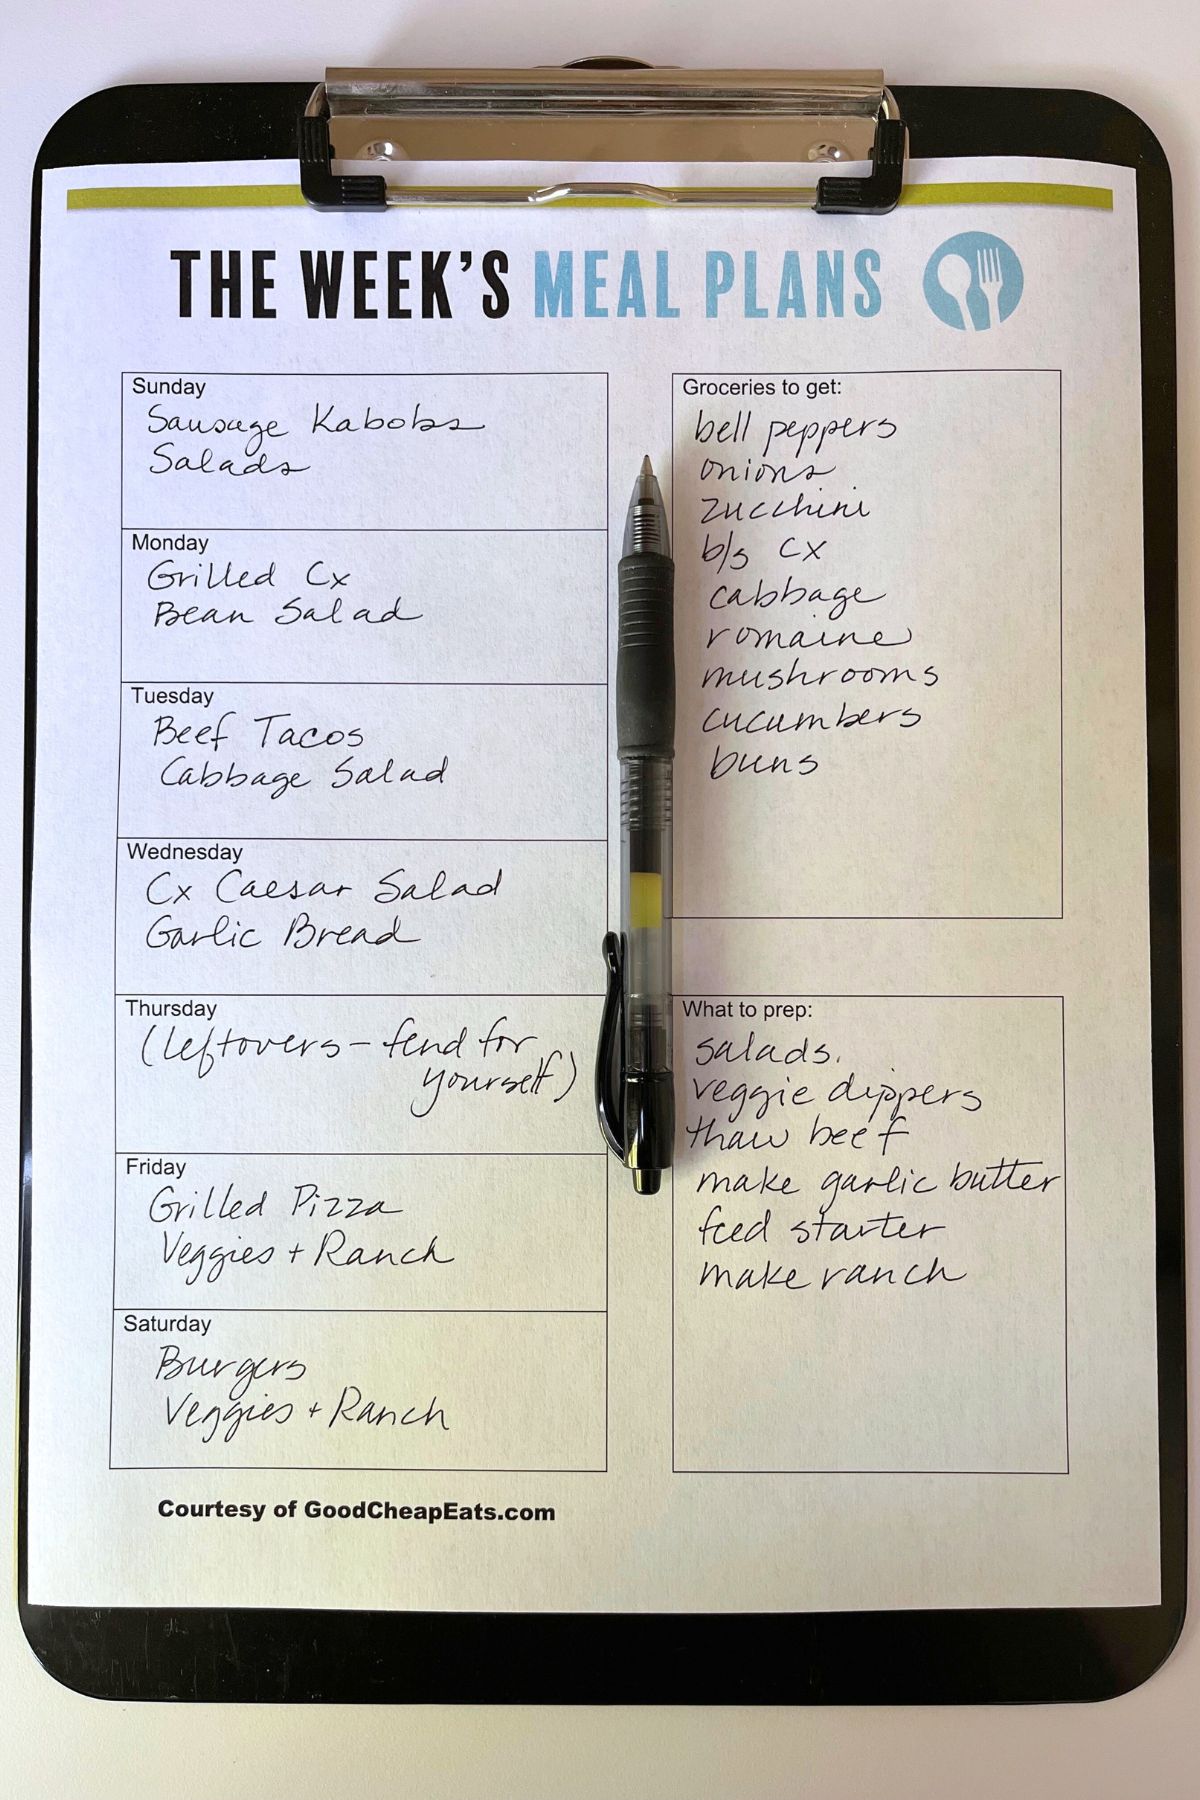 THE WEEK'S MEAL PLANS
Sunday
Sausage Kabobs
Salads
Monday
Grilled Cx
Bean Salad
Tuesday
Beef Tacos
Cabbage Salad
Wednesday
Cx Caesar Salad
Garlic Bread
Thursday
(leftovers - fend for
yourself)
Friday
Grilled Pizza
Veggies + Ranch
Saturday
Burgers
Veggies + Ranch
Groceries to get:
bell peppers
onions
zucchini
b/s cx
cabbage
romaine
mushrooms
cucumbers
buns
What to prep:
salads.
veggie dippers
thaw beef
make garlic butter
feed starter
make ranch
Courtesy of GoodCheapEats.com